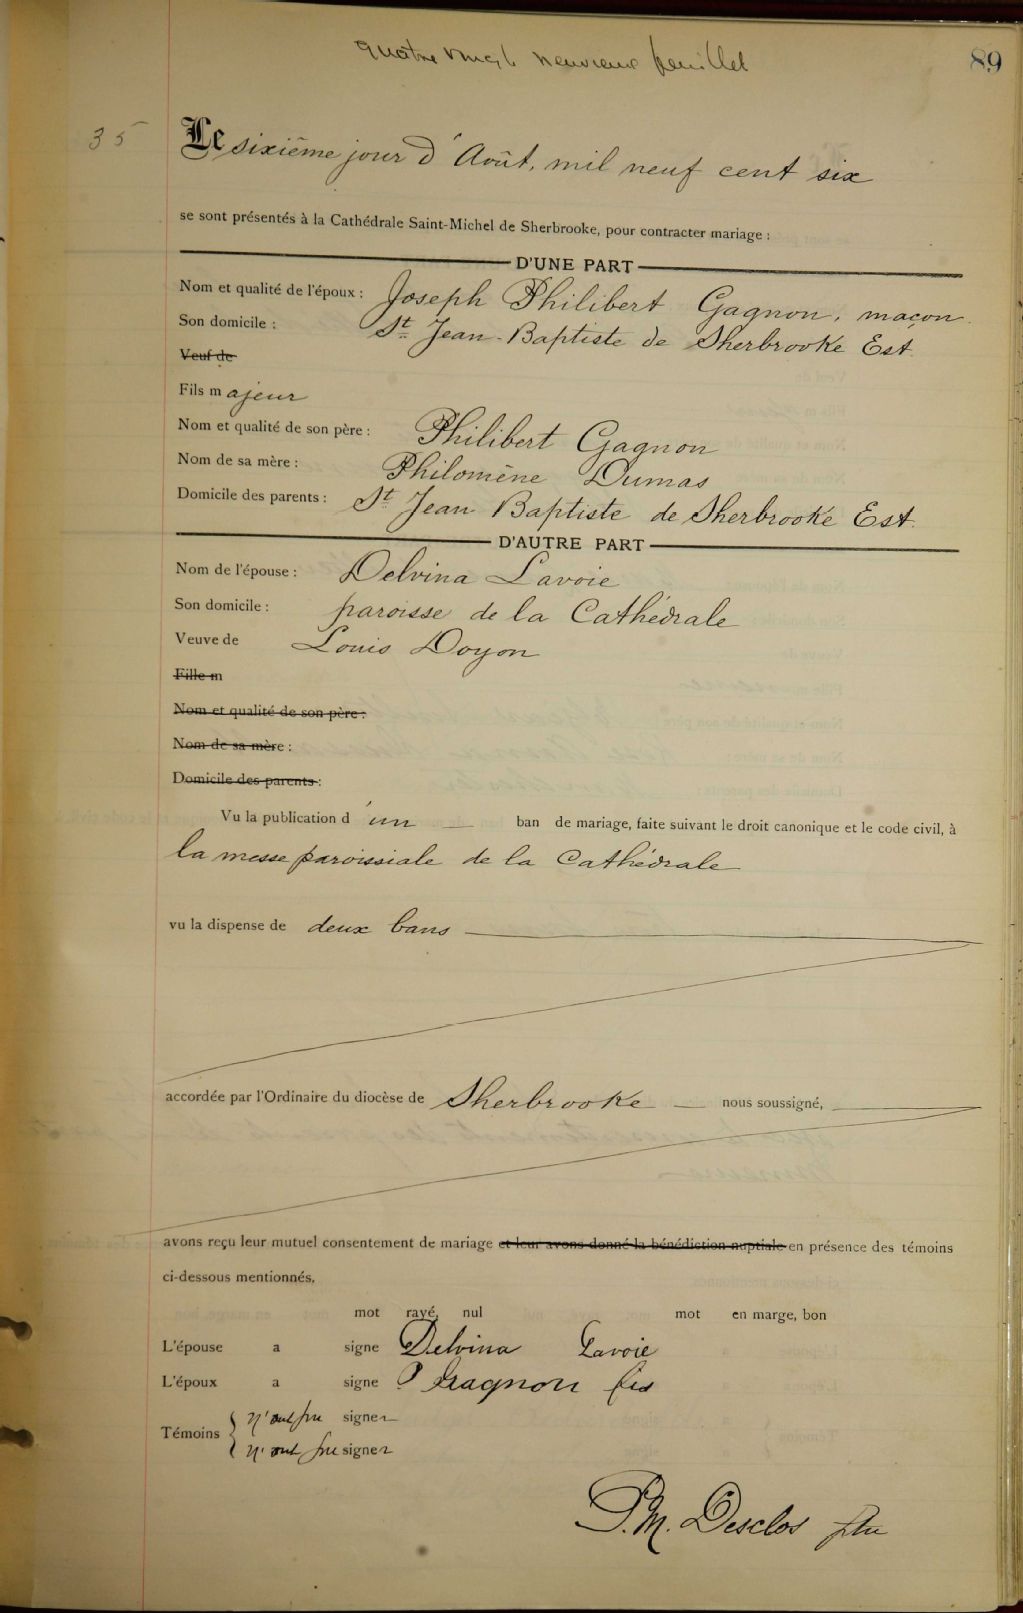 quatre vingt neuvieme feuillet
89
35
Le sixième jour d'Août, mil neuf cent six
se sont présentés à la Cathédrale Saint-Michel de Sherbrooke, pour contracter mariage :
D'UNE PART
Nom et qualité de l'époux : Joseph Philibert Gagnon, maçon
Son domicile : St. Jean-Baptiste de Sherbrooke Est.
Veuf de
Fils majeur
Nom et qualité de son père : Philibert Gagnon
Nom de sa mère : Philomène Dumas
Domicile des parents : St. Jean Baptiste de Sherbrooke Est.
D'AUTRE PART
Nom de l'épouse : Delvina Lavoie
Son domicile : paroisse de la Cathédrale
Veuve de Louis Doyon
Fille m
Nom et qualité de son père :
Nom de sa mère :
Domicile des parents :
Vu la publication d'un ban de mariage, faite suivant le droit canonique et le code civil, à
la messe paroissiale de la Cathédrale
vu la dispense de deux bans
accordée par l'Ordinaire du diocèse de Sherbrooke nous soussigné,
avons reçu leur mutuel consentement de mariage et leur avons donné la bénédiction nuptiale en présence des témoins
ci-dessous mentionnés.
mot rayé, nul mot en marge, bon
L'épouse a signé Delvina Lavoie
L'époux a signé P Gagnon fils
Témoins n'ont pu signer
n'ont pu signer
P.M. Desclos ptre